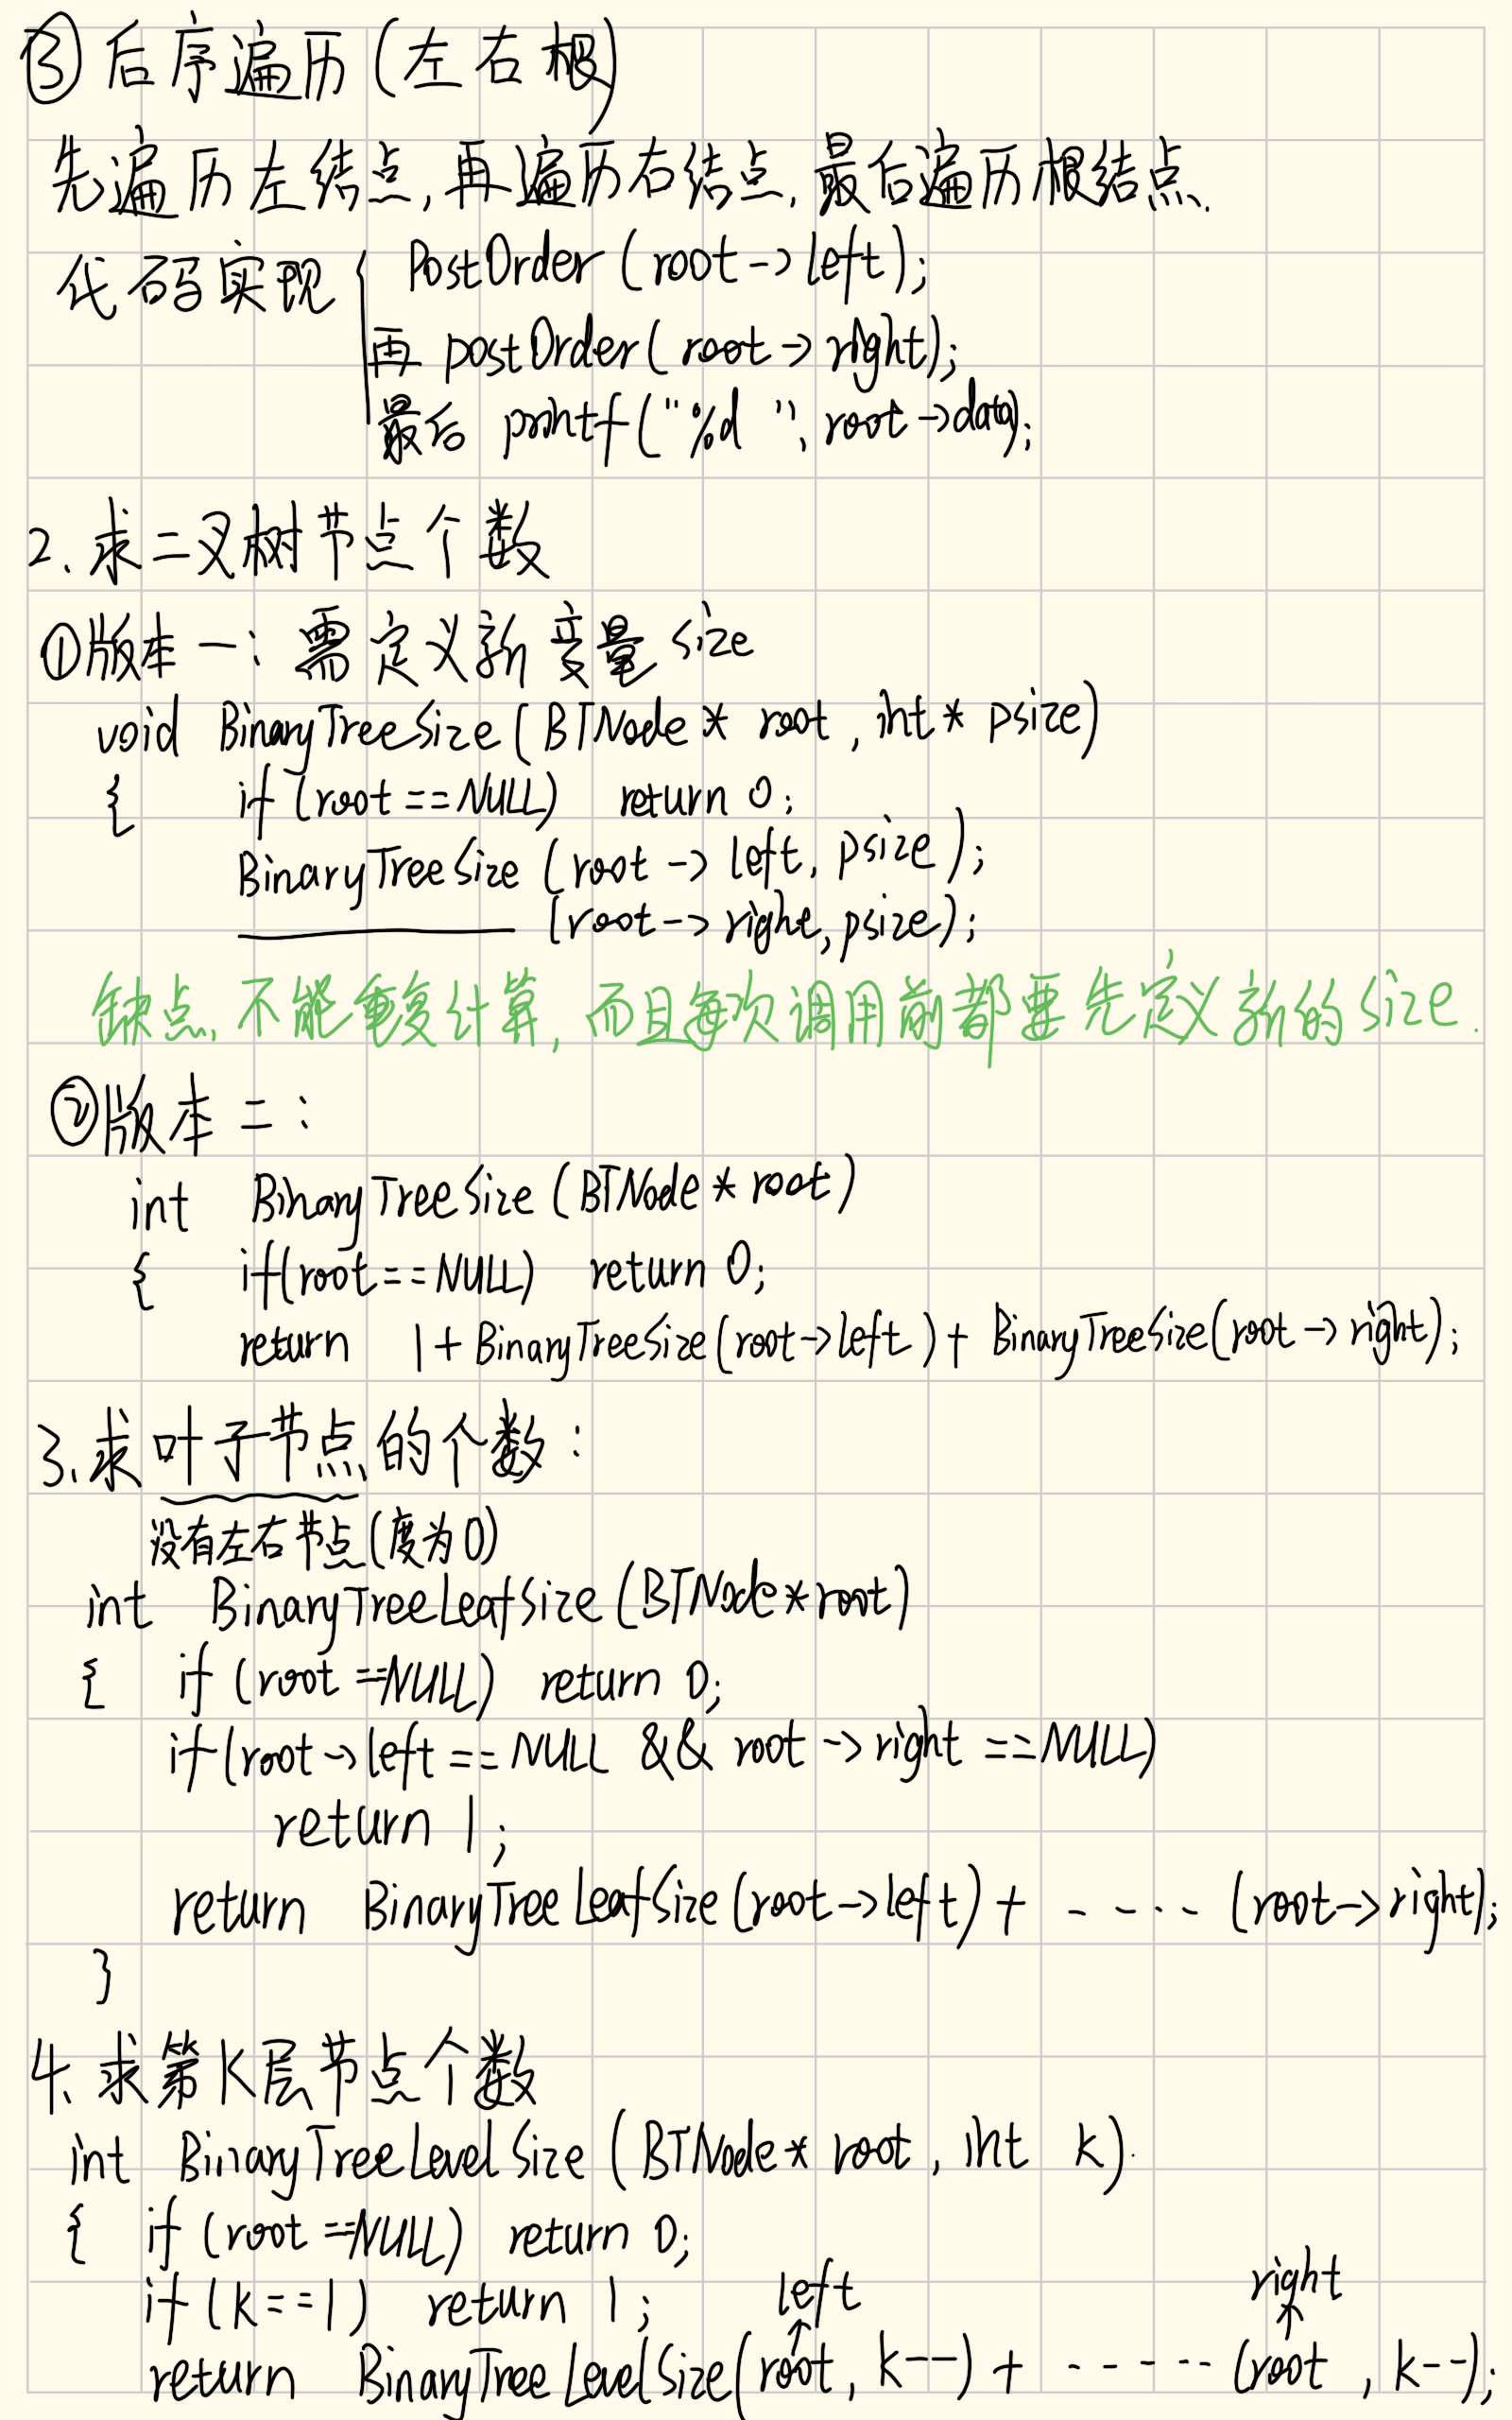 ③后序遍历(左右根)
先遍历左结点,再遍历右结点,最后遍历根结点.
代码实现{ PostOrder(root->left);
再 postOrder(root->right);
最后 printf("%d ", root->data);
2.求二叉树节点个数
①版本一:需定义新变量size
void BinaryTreeSize(BTNode* root,int* psize)
{ if(root==NULL) return 0;
BinaryTreeSize(root->left,psize);
(root->right,psize);
缺点,不能重复计算,而且每次调用前都要先定义新的size.
②版本二:
int BinaryTreeSize(BTNode*root)
{ if(root==NULL) return 0;
return 1+BinaryTreeSize(root->left)+BinaryTreeSize(root->right);
3.求叶子节点的个数:
没有左右节点(度为0)
int BinaryTreeLeafSize(BTNode*root)
{ if(root==NULL) return 0;
if(root->left==NULL && root->right==NULL)
return 1;
return BinaryTreeLeafSize(root->left)+ ----- (root->right);
}
4.求第K层节点个数
int BinaryTreeLevelSize(BTNode* root,int k)
{ if(root==NULL) return 0;
if(k==1) return 1;
left right
↑ ↑
return BinaryTreeLevelSize(root,k--)+ ------ (root,k--);